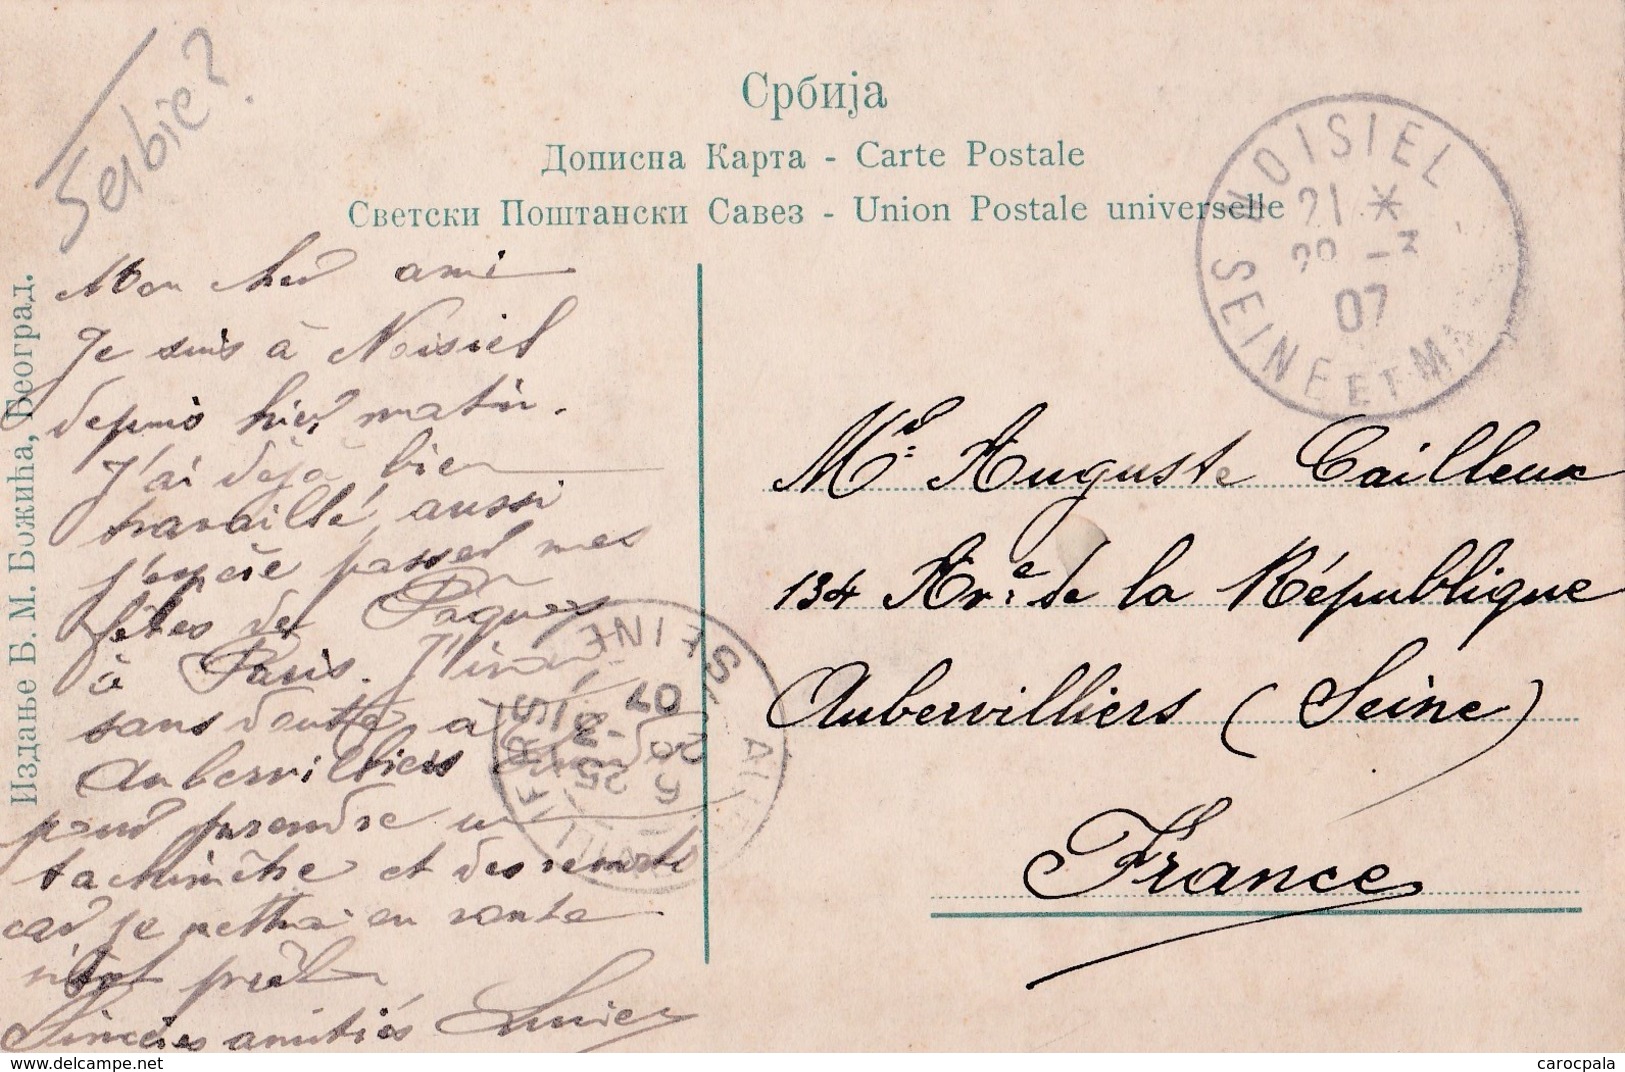 Serbie?
Србија
Дописна Карта - Carte Postale
Светски Поштански Савез - Union Postale universelle
Издање Б. М. Божића, Београд.
NOISIEL
21 *
-3
07
SEINE ET M
Mon cher ami
Je suis à Noisiel
depuis hier matin.
J'ai déjà bien
travaillé, aussi
j'espère passer mes
fêtes de Pâques
à Paris. J'irai
sans doute à
Aubervilliers
pour prendre
ta machine et des
car je mettrai en route
sitôt prêt
Sincères amitiés
SEINE
07
25
Mr. Auguste Cailleux
134 Ave. de la République
Aubervilliers (Seine)
France
delcampe.net
carocpala